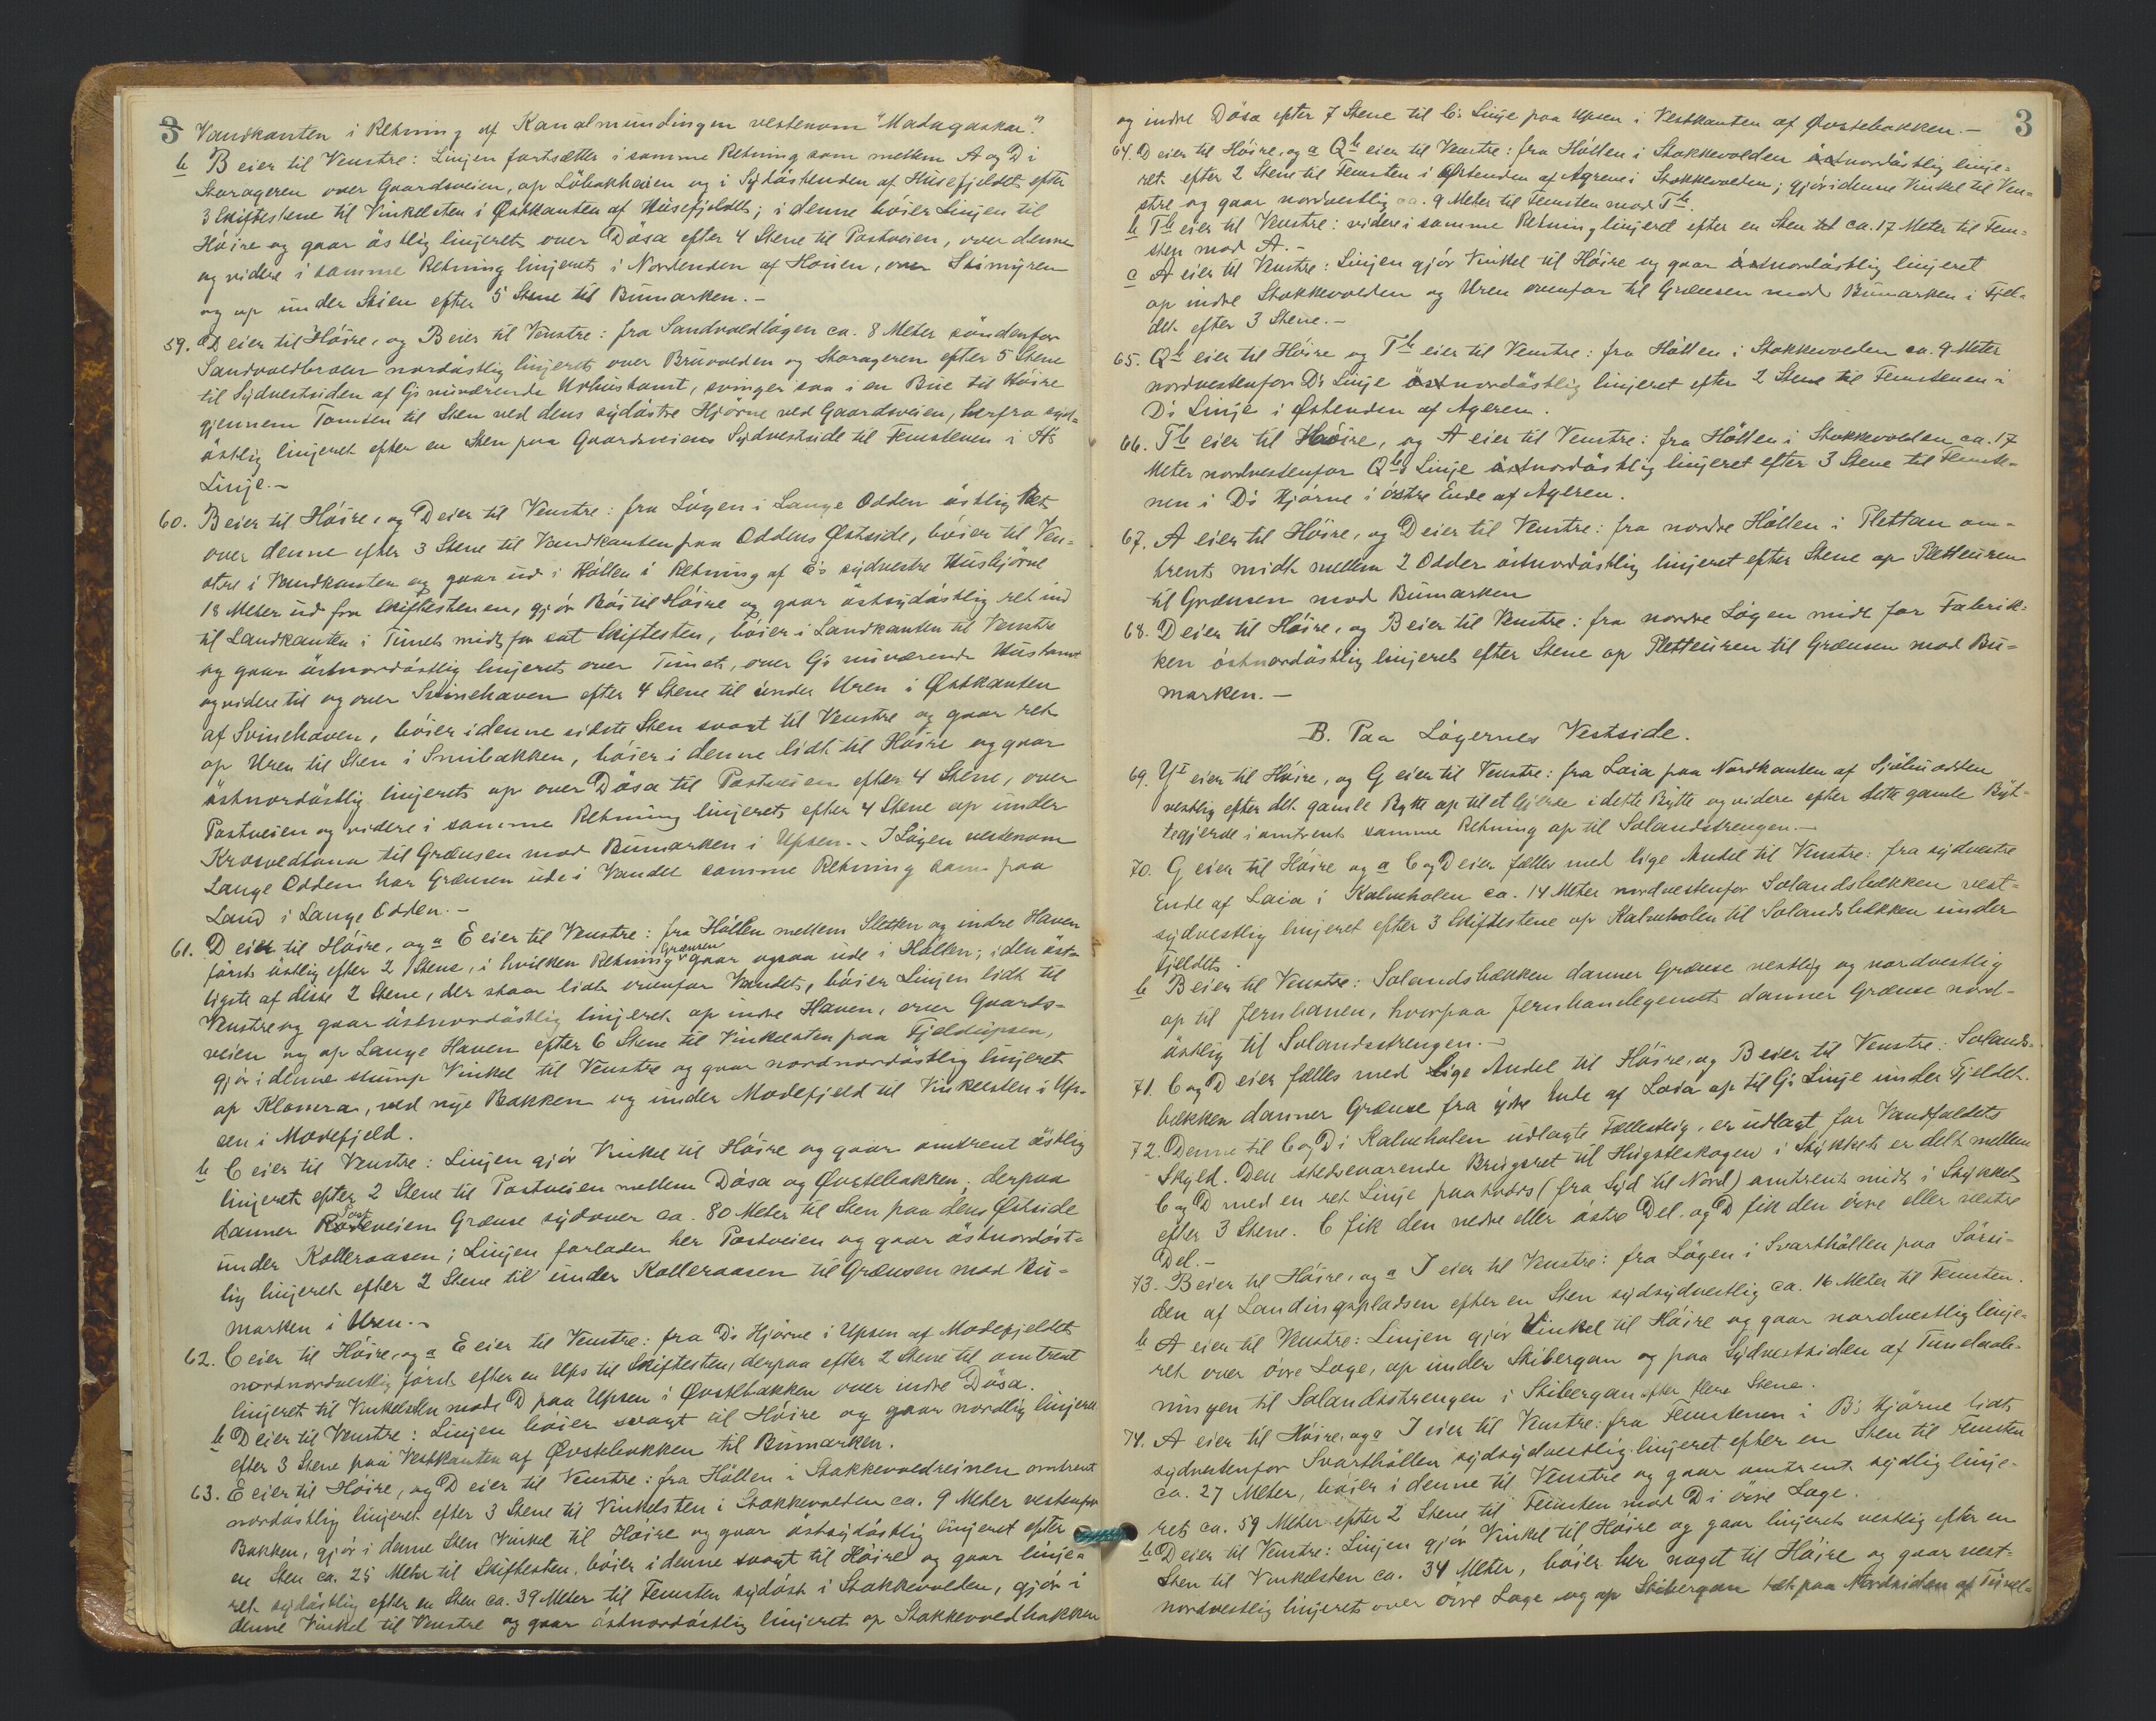 3 Vandkanten i Retning af Kanalmundingen vestenom "Madagaskar".
b B eier til Venstre: Linjen fortsætter i samme Retning som mellem A og D i
Storageren over Gaardsveien, op Löbakhaien og i Sydöstenden af Husefjeldet efter
3 Skiftestene til Vinkelsten i Östkanten af Husefjeldet; i denne böier Linjen til
Höire og gaar östlig linjeret over Dösa efter 4 Stene til Postveien, over denne
og videre i samme Retning linjeret i Nordenden af Houen, over Skimyren
og op under Skien efter 5 Stene til Bumarken.-
59. D eier til Höire, og B eier til Venstre: fra Sandvoldlögen ca. 8 Meter söndenfor
Sandvoldbroen nordöstlig linjeret over Bruvolden og Storageren efter 5 Stene
til Sydvestsiden af G's nuværende Udhustomt, svinger saa i en Bue til Höire
gjennem Tomten til Sten ved dens sydöstre Hjörne ved Gaardsveien, herfra syd-
östlig linjeret efter en Sten paa Gaardsveiens Sydvestside til Femstenen i A's
Linje.-
60. B eier til Höire, og D eier til Venstre: fra Lögen i Lange Odden östlig ret
over denne efter 3 Stene til Vandkanten paa Oddens Østside, böier til Ven-
stre i Vandkanten og gaar ud i Höllen i Retning af E's sydvestre Hushjörne
18 Meter ud fra Skiftestenen, gjör Böi til Höire og gaar östsydöstlig ret ind
til Landkanten i Tunet midt for sat Skiftesten, böier i Landkanten til Venstre
og gaar östnordöstlig linjeret over Tunet, over G's nuværende Hustomt
og videre til og over Svinehaven efter 4 Stene til under Uren i Østkanten
af Svinehaven, böier i denne sidste Sten svagt til Venstre og gaar ret
op Uren til Sten i Smibakken, böier i denne lidt til Höire og gaar
östnordöstlig linjeret op over Dösa til Postveien efter 4 Stene, over
Postveien og videre i samme Retning linjeret efter 4 Stene op under
Krosvedtona til Grænsen mod Bumarken i Upsen.- I Lögen vestenom
Lange Odden har Grænsen ude i Vandet samme Retning som paa
Land i Lange Odden.-
61. D eier til Höire, og a E eier til Venstre: fra Höllen mellem Sletten og indre Haven
först östlig efter 2 Stene, i hvilken Retning Grænsen gaar ogsaa ude i Höllen; i den öst-
ligste af disse 2 Stene, der staar lidt ovenfor Vandet, böier Linjen lidt til
Venstre og gaar östnordöstlig linjeret op indre Haven, over Gaards-
veien og op Lange Haven efter 6 Stene til Vinkelsten paa Fjeldupsen,
gjör i denne stump Vinkel til Venstre og gaar nordnordöstlig linjeret
op Klomra, ved nye Bakken og under Modefjeld til Vinkelsten i Up-
sen i Modefjeld.
b C eier til Venstre: Linjen gjör Vinkel til Höire og gaar omtrent östlig
linjeret efter 2 Stene til Postveien mellem Dösa og Øvstebakken; derpaa
danner Postveien Grænse sydover ca. 80 Meter til Sten paa dens Østside
under Kolleraasen; Linjen forlader her Postveien og gaar östnordöst-
lig linjeret efter 2 Stene til under Kolleraasen til Grænsen mod Bu-
marken i Uren.-
62. C eier til Höire, og a E eier til Venstre: fra D's Hjörne i Upsen af Modefjeldet
nordnordvestlig först efter en Ups til Skiftesten, derpaa efter 2 Stene til omtrent
linjeret til Vinkelsten mod D paa Upsen i Øvstebakken over indre Dösa.
b D eier til Venstre: Linjen böier svagt til Höire og gaar nordlig linjeret
efter 3 Stene paa Vestkanten af Øvstebakken til Bumarken.
63. E eier til Höire, og D eier til Venstre: fra Höllen i Stokkevoldreinen omtrent
nordöstlig linjeret efter 3 Stene til Vinkelsten i Stokkevolden ca. 9 Meter vestenfor
Bakken, gjör i denne Sten Vinkel til Höire og gaar östsydöstlig linjeret efter
en Sten ca. 25 Meter til Skiftesten, böier i denne svagt til Höire og gaar linje-
ret sydöstlig efter en Sten ca. 39 Meter til Femsten sydöst i Stokkevolden, gjör i
denne Vinkel til Venstre og gaar östnordöstlig linjeret op Stokkevoldbakken
3
og indre Dösa efter 7 Stene til C's Linje paa Upsen i Vestkanten af Øvstebakken.-
64. D eier til Höire, og a Qb eier til Venstre: fra Höllen i Stokkevolden östnordöstlig linje-
ret efter 2 Stene til Femsten i Østenden af Agrene i Stokkevolden; gjör i denne Vinkel til Ven-
stre og gaar nordvestlig ca. 9 Meter til Femsten mod Tb.
b Tb eier til Venstre: videre i samme Retning linjeret efter en Sten til ca. 17 Meter til Fem-
sten mod A.-
c A eier til Venstre: Linjen gjör Vinkel til Höire og gaar östnordöstlig linjeret
op indre Stokkevolden og Uren ovenfor til Grænsen mod Bumarken i Fjel-
det efter 3 Stene.-
65. Qb eier til Höire og Tb eier til Venstre: fra Höllen i Stokkevolden ca. 9 Meter
nordvestenfor D's Linje östnordöstlig linjeret efter 2 Stene til Femstenen i
D's Linje i Østenden af Ageren.
66. Tb eier til Höire, og A eier til Venstre: fra Höllen i Stokkevolden ca. 17
Meter nordvestenfor Qb's Linje östnordöstlig linjeret efter 3 Stene til Femste-
nen i D's Hjörne i östre Ende af Ageren.
67. A eier til Höire, og D eier til Venstre: fra nordre Höllen i Plettan om-
trent midt mellem 2 Odder östnordöstlig linjeret efter Stene op Pletteuren
til Grænsen mod Bumarken
68. D eier til Höire, og B eier til Venstre: fra nordre Lögen midt for Fabrik-
ken östnordöstlig linjeret efter Stene op Pletteuren til Grænsen mod Bu-
marken.-
B. Paa Lögernes Vestside.
69. YI eier til Höire, og G eier til Venstre: fra Laia paa Nordkanten af Sjölmodden
vestlig efter det gamle Bytte op til et Gjerde i dette Bytte og videre efter dette gamle Byt-
tegjerde i omtrent samme Retning op til Solandstrengen.-
70. G eier til Höire og a C og D eier fælles med lige Andel til Venstre: fra sydvestre
Ende af Laia i Kalveholen ca. 14 Meter nordvestenfor Solandsbækken vest-
sydvestlig linjeret efter 3 Skiftestene op Kalveholen til Solandsbækken under
Fjeldet.
b B eier til Venstre: Solandsbækken danner Grænse vestlig og nordvestlig
op til Jernbanen, hvorpaa Jernbanelegemet danner Grænse nord-
östlig til Solandsstrengen.-
71. C og D eier fælles med lige Andel til Höire, og B eier til Venstre: Solands-
bækken danner Grænse fra ydre Ende af Laia op til G's Linje under Fjeldet.
72. Denne til C og D i Kalveholen udlagte Fællesteig, er udlagt for Vandfaldets
Skyld. Den stedsevarende Brugsret til Hugsteskogen i Stykket er delt mellem
C og D med en ret Linje paatvärs (fra Syd til Nord) omtrent midt i Stykket
efter 3 Stene. C fik den nedre eller östre Del, og D fik den övre eller vestre
Del.-
73. B eier til Höire, og a I eier til Venstre: fra Lögen i Svarthöllen paa Sörsi-
den af Landingspladsen efter en Sten sydsydvestlig ca. 16 Meter til Femsten.
b A eier til Venstre: Linjen gjör Vinkel til Höire og gaar nordvestlig linje-
ret over övre Loge, op under Skibergan og paa Sydvestsiden af Tunelaab-
ningen til Solandsstrengen i Skibergan efter flere Stene.
74. A eier til Höire, og a I eier til Venstre: fra Femstenen i B's Hjörne lidt
sydvestenfor Svarthöllen sydsydvestlig linjeret efter en Sten til Femsten
ca. 27 Meter, böier i denne til Venstre og gaar omtrent sydlig linje-
ret ca. 59 Meter efter 2 Stene til Femsten mod D i övre Loge.
b D eier til Venstre: Linjen gjör Vinkel til Höire og gaar linjeret vestlig efter en
Sten til Vinkelsten ca. 34 Meter, böier her noget til Höire og gaar vest-
nordvestlig linjeret over övre Loge og op Skibergan tæt paa Nordsiden af Tunel-